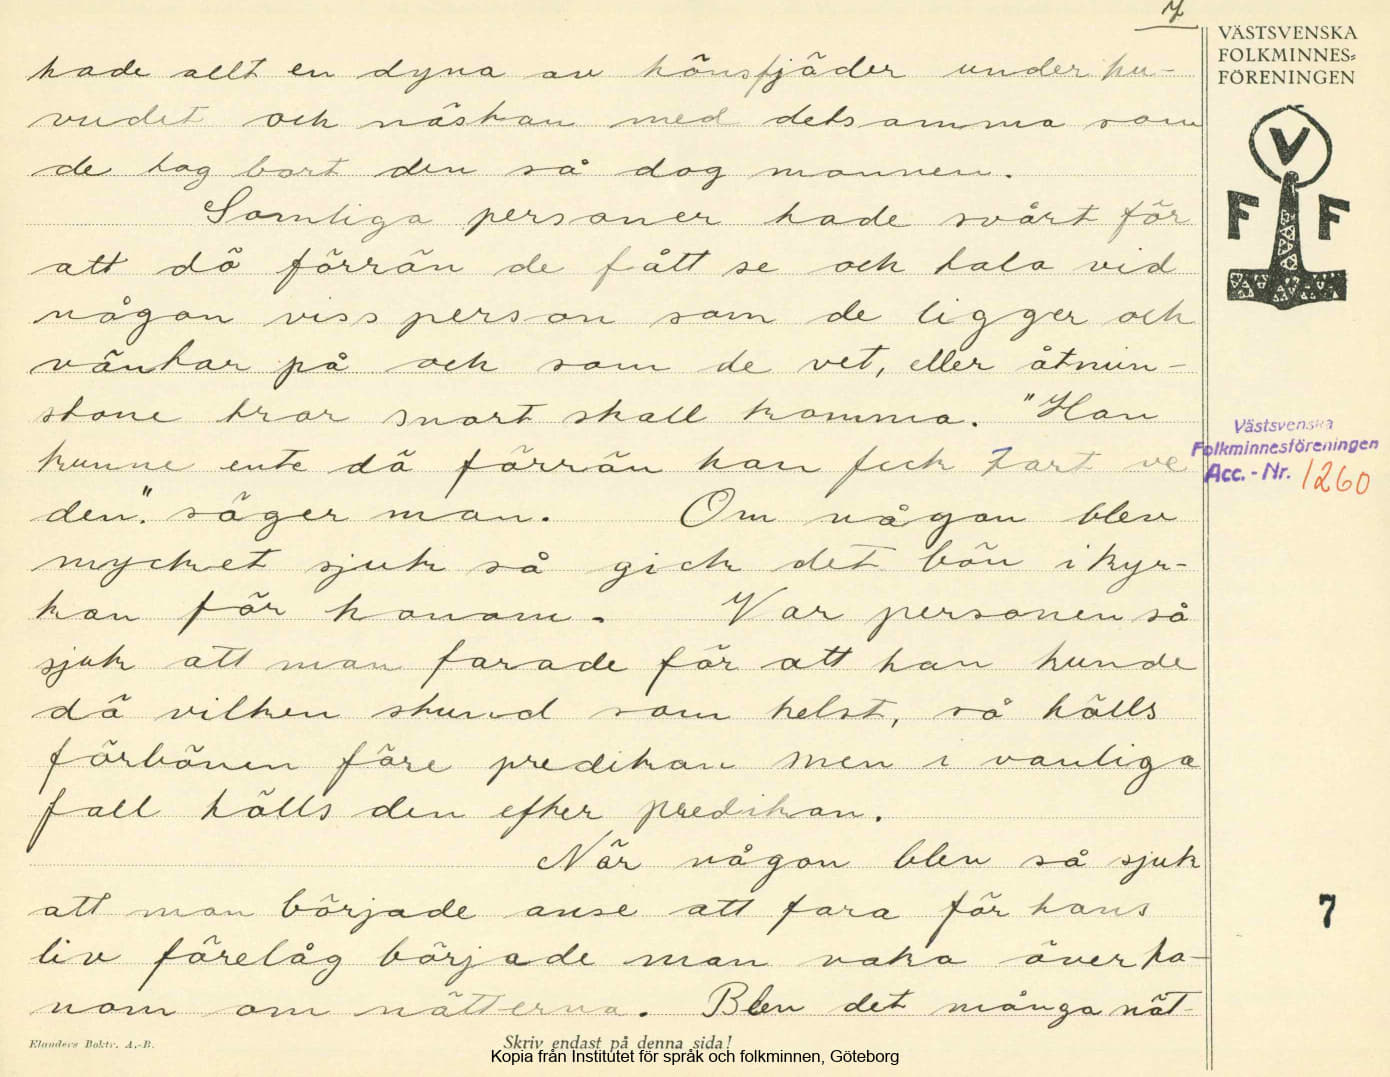 7
VÄSTSVENSKA
FOLKMINNES=
FÖRENINGEN
V
F F
hade allt en dyna av hönsfjäder under hu-
vudet och nästan med detsamma som
de tog bort den så dog mannen.
Somliga personer hade svårt för
att dö förrän de fått se och tala vid
någon viss person som de ligger och
väntar på och som de vet, eller åtmin-
stone tror snart skall komma. "Han
kunne ente dö förrän han feck tart ve
den". säger man. Om någon blev
mycket sjuk så gick det bön i kyr-
kan för honom. Var personen så
sjuk att man farade för att han kunde
dö vilken stund som helst, så hölls
förbönen före predikan men i vanliga
fall hölls den efter predikan.
När någon blev så sjuk
att man började anse att fara för hans
liv förelåg började man vaka över ho-
nom om nätterna. Blev det många nät-
Västsvenska
Folkminnesföreningen
Acc. - Nr. 1260
7
Elanders Boktr. A.-B.
Skriv endast på denna sida!
Kopia från Institutet för språk och folkminnen, Göteborg